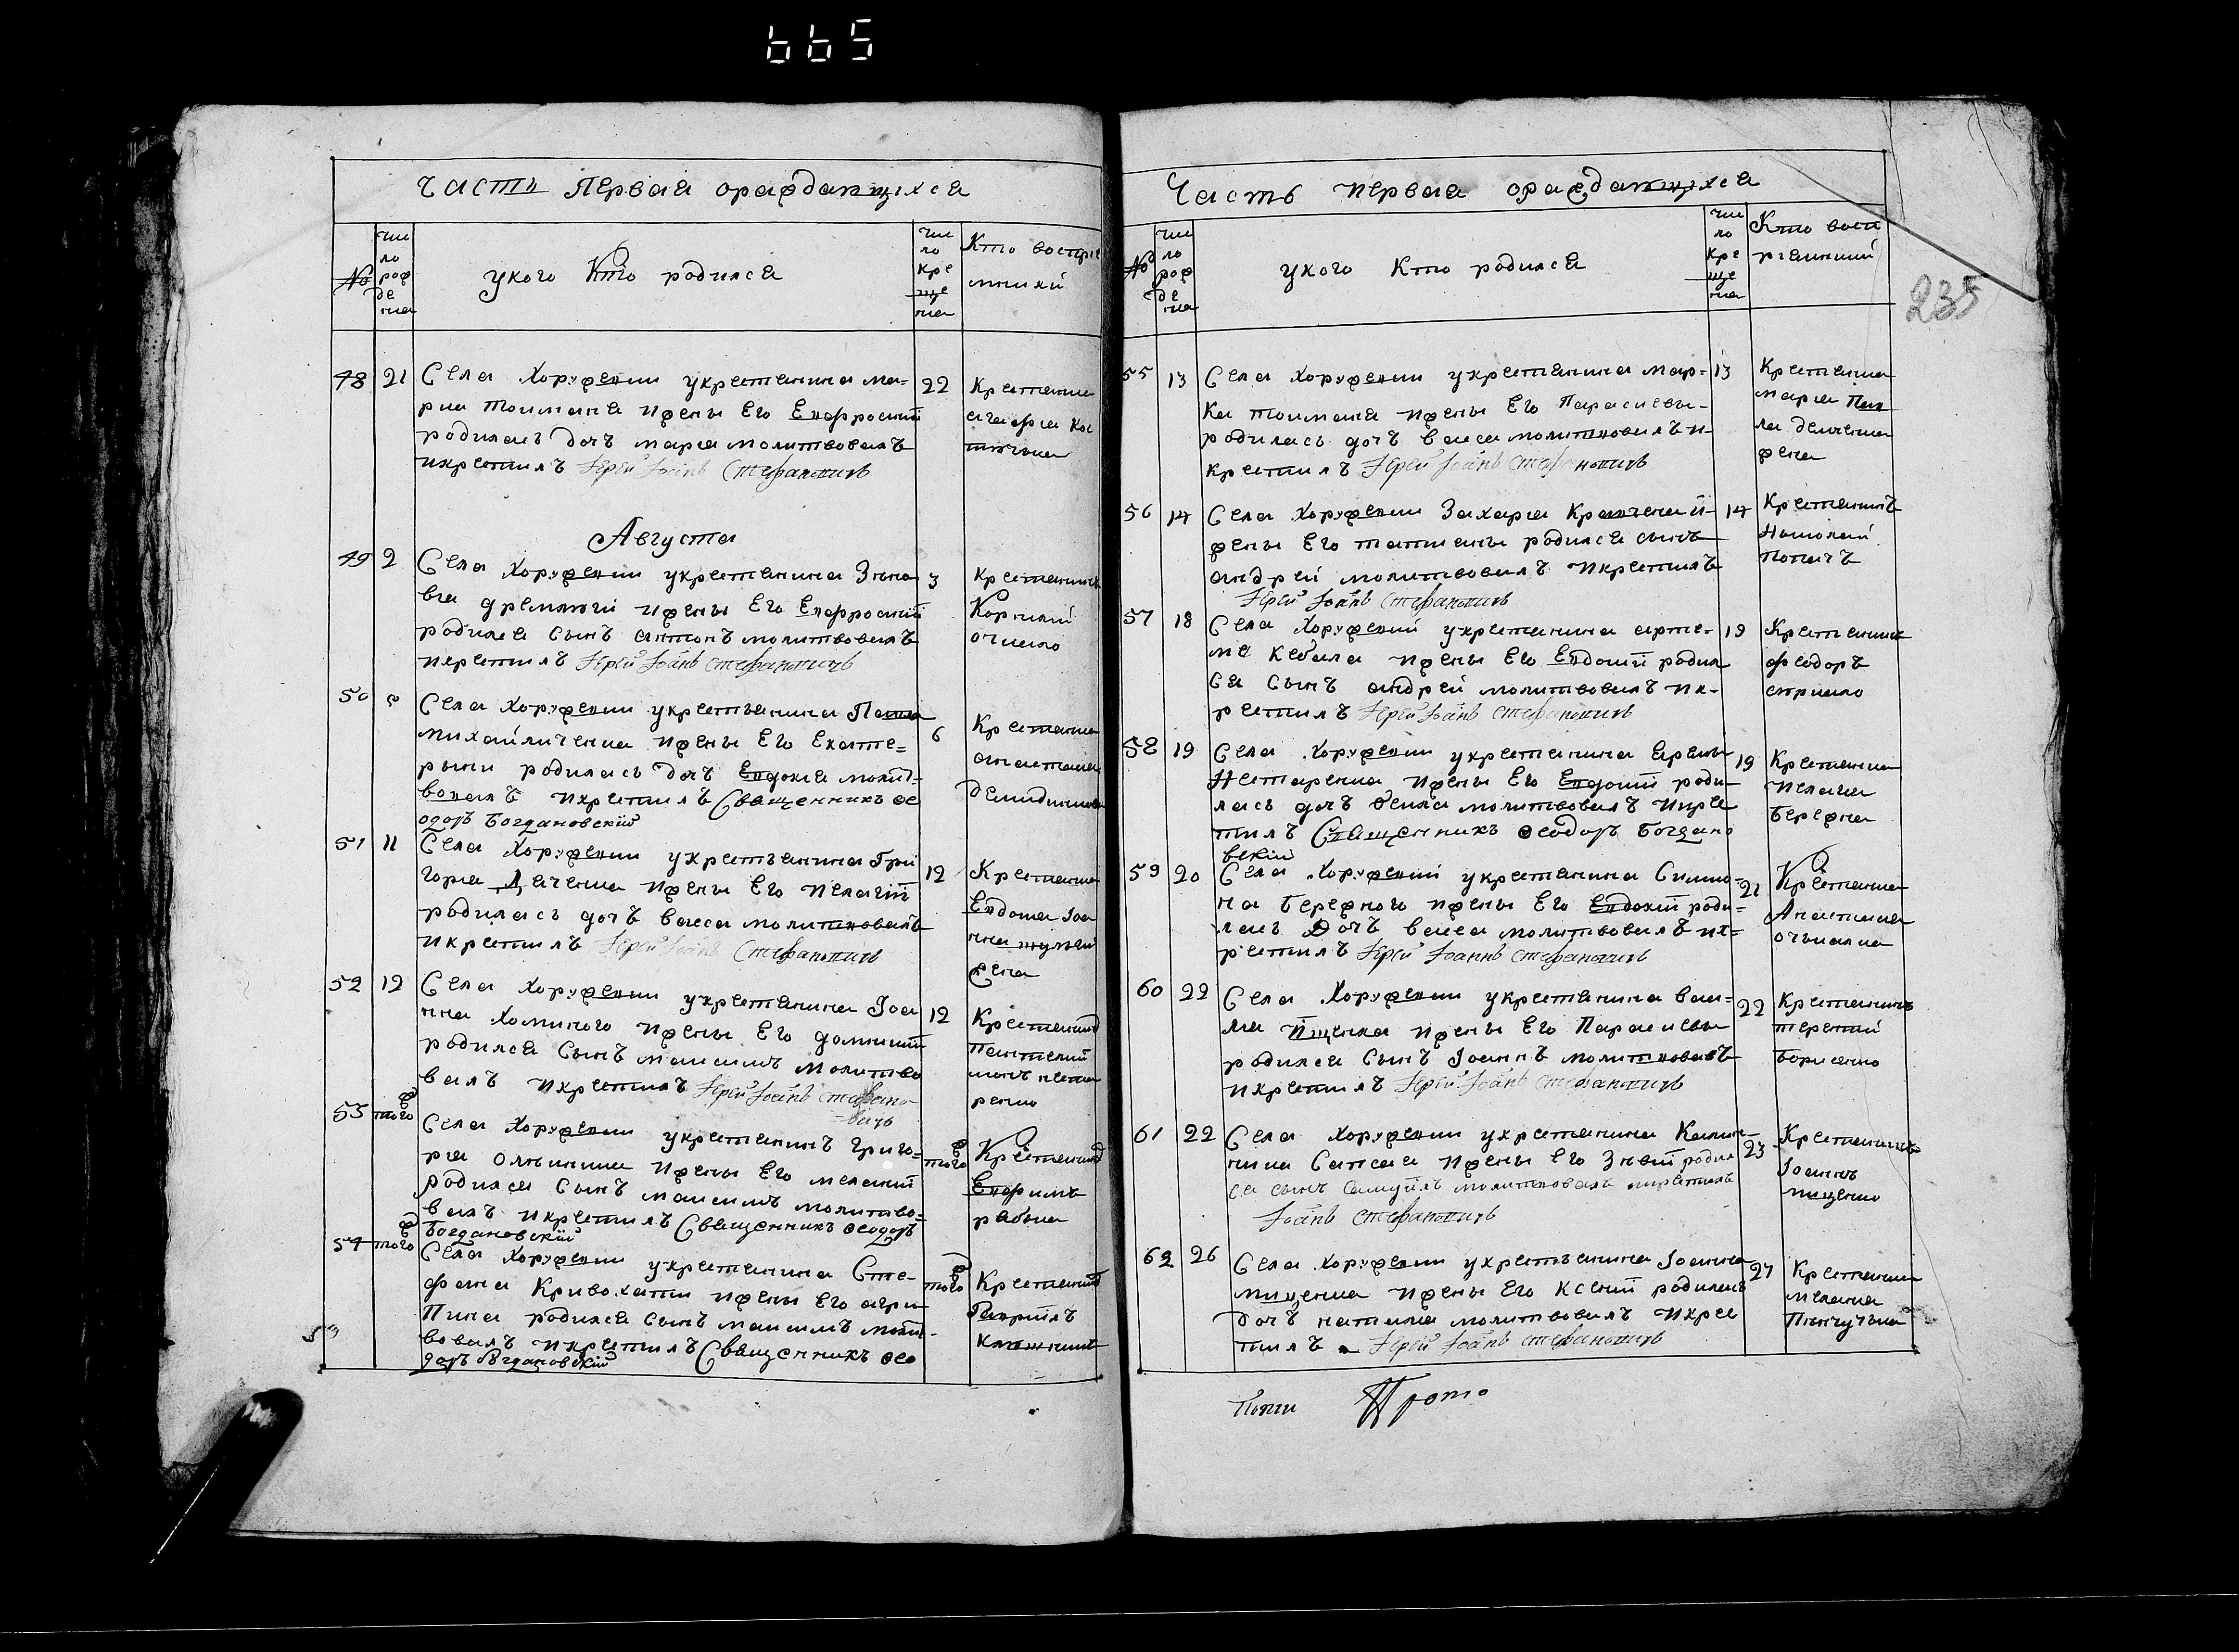 665
Часть Первая ораждающихся
№
чис
ло
рож
де
ния
у кого Кто родился
чис
ло
кре
ще
ния
Кто воспрі
мники
48 21 Села Хоружевки у крестянина ма-
рка тоимана и жены Его Евфросиніи
родилась дочъ марія молитвовалъ
и крестилъ Іерей Іоаннъ Стефановичъ
22 Крестянка
агафия
Августа
49 2 Села Хоружевки у крестянина Знно
вія дремлюги и жены Его Евфросиніи
родился Сынъ антонъ молитвовалъ
и крестилъ Іерей Іоаннъ Стефановичъ
3 крестянинъ
Корнилій
50 Села Хоружевки у крестъянина Павла
михайличенка и жены Его Екате=
рыны родилась дочъ Евдокія молит-
вовалъ и крестилъ Священникъ Ѳе
одоръ Богдановскій
6 Крестянка
анастасия
51 11 Села Хоружевки у крестъянина Гри
горія Дяченка и жены Его пелагіи
родилась дочъ васса молитвовалъ
и крестилъ Іерей Іоаннъ Стефановичъ
12 Крестянка
Евдокия Іоа
нна
жена
52 12 Села Хоружевки у крестянина Іоа
нна Хоминого и жены Его домникии
родился Сынъ максимъ молитво
валъ и крестилъ Іерей Іоаннъ Стефано-
вичъ
12 Крестянинъ
Пантелий
монъ несте
ренко
53 того Села Хоружевки у крестянинъ григо=
рия и жены Его меланіи
родился Сынъ максимъ молитво=
валъ и крестилъ Священникъ Ѳеодоръ
Богдановскій
того Крестянинъ
Евфимъ
рябека
54 того Села Хоружевки у крестянина Сте-
фана Кривохати и жены Его агри
Пина родился Сынъ максимъ молит-
вовалъ и крестилъ Священникъ Ѳео
доръ Богдановскій
того Крестянинъ
Гаврійлъ
Часть первая ораждающихся
235
№
чис
ло
рож
де
ния
у кого Кто родился
чис
ло
кре
ще
ния
Кто восп
рiемникий
55 13 Села Хоружевки у крестянина мар-
ка тоимана и жены Его Параскевы-
родилась дочъ васса молитвовалъ и-
крестилъ Іерей Іоаннъ Стефановичъ
13 Крестянка
мария Пав
ла демченка
жена
56 14 Села Хоружевки Захария Кравчена и-
жены Его татияны родился сынъ
андрей молитвовалъ и крестилъ
Іерей Іоаннъ Стефановичъ
14 Крестянинъ
Николай
Попачъ
57 18 Села Хоружевкй у крестянина арте-
ма Кебала и жены Его Евдокіи родил
ся Сынъ андрей молитвовалъ и к-
рестилъ Іерей Іоаннъ Стефановичъ
19 Крестянинъ
феодоръ
58 19 Села Хоружевки у крестянина Еремы
Нестеренка и жены Его Евдокіи роди-
лась дочъ Ѳекла молитвовалъ и кре
стилъ Священникъ Ѳеодоръ Богдано
вскій
19 Крестянка
пелагия
Бережна
59 20 Села Хоружевкй у крестянина Симио-
на Бережного и жены Его Евдокіи роди-
лась Дочъ васса молитвовалъ и к-
рестилъ Іерей Іоаннъ Стефановичъ
21 Крестянка
Анастасия
60 22 Села Хоружевки у крестянина васи-
лия Пщенка и жены Его Параскевы
родился Сынъ Іоаннъ молитвовалъ
и крестилъ Іерей Іоаннъ Стефановичъ
22 Крестянинъ
терентий
Борисенко
61 22 Села Хоружевки у крестянина Калин-
ника Сапсая и жены Его Зновіи родил
ся сынъ самуйлъ молитвовалъ и крестилъ
Іоаннъ Стефановичъ
23 Крестянинъ
Іоаннъ
пищенко
62 26 Села Хоружевки у крестъянина Іоанна
пищенка и жены Его Ксеніи родилась
Дочъ наталия молитвовалъ и крес
тилъ Іерей Іоаннъ Стефановичъ
27 Крестянка
мелания
Прото